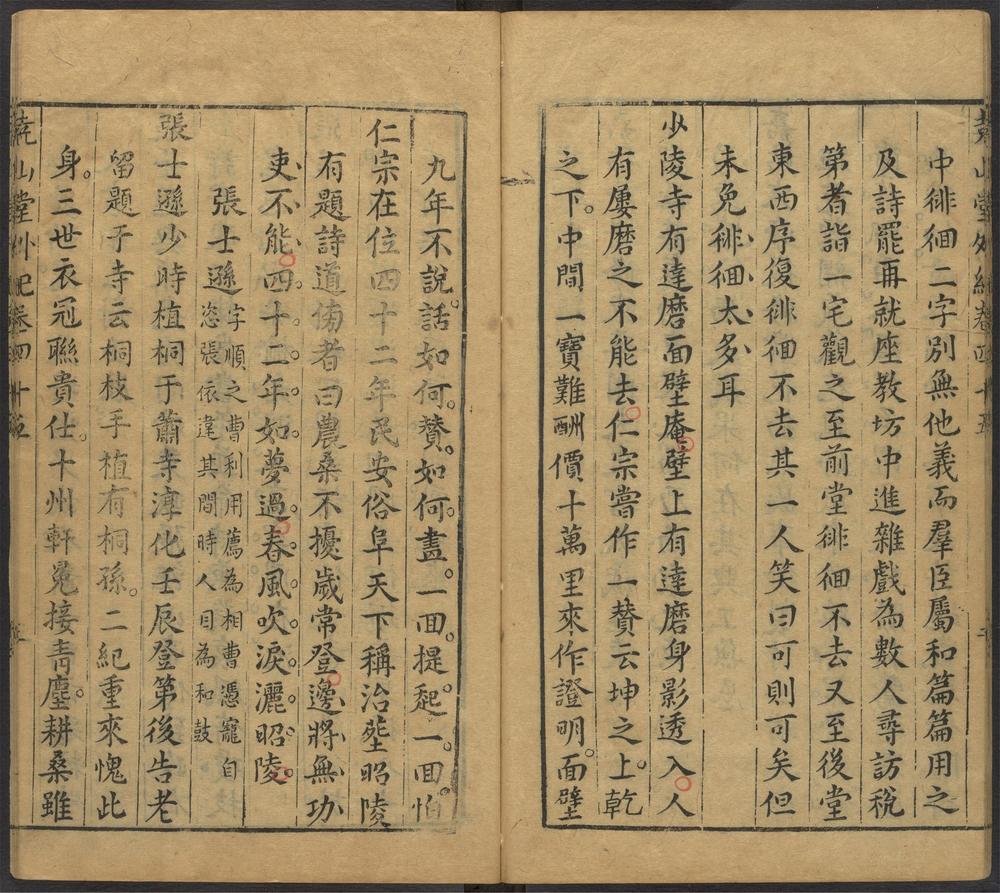 堯山堂外紀卷四十五
中徘徊二字別無他義而羣臣屬和篇篇用之
及詩罷再就座教坊中進雜戲為數人尋訪稅
第者詣一宅觀之至前堂徘徊不去又至後堂
東西序復徘徊不去其一人笑曰可則可矣但
未免徘徊太多耳
少陵寺有達磨面壁庵壁上有達磨身影透入人
有屢磨之不能去仁宗嘗作一贊云坤之上乾
之下中間一寶難酬價十萬里來作證明面壁
九年不說話如何贊如何畫一回提起一回怕
仁宗在位四十二年民安俗阜天下稱治塟昭陵
有題詩道傍者曰農桑不擾歲常登邊將無功
吏不能四十二年如夢過春風吹淚灑昭陵
張士遜字順之曹利用薦為相曹憑寵自
恣張依違其間時人目為和鼓
張士遜少時植桐于蕭寺淳化壬辰登第後告老
留題于寺云桐枝手植有桐孫二紀重來愧此
身三世衣冠聯貴仕十州軒冕接青塵耕桑雖
堯山堂外紀卷四十五